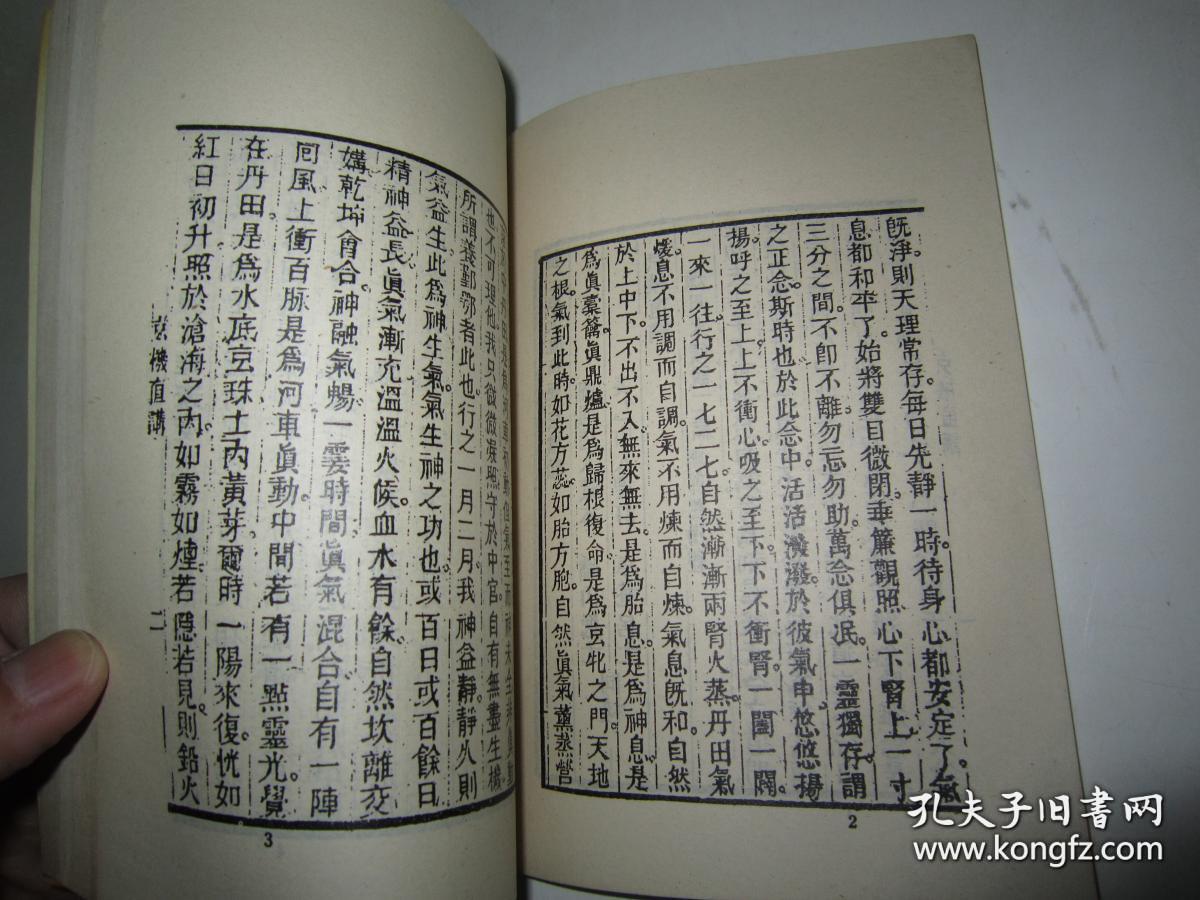 旣淨則天理常存每日先靜一時待身心都安定了氣
息都和平了。始將雙目微閉垂簾觀照心下腎上一寸
三分之間不卽不離勿忘勿助萬念俱泯。一靈獨存謂
之正念斯時也於此念中活活潑潑於彼氣中悠悠揚
揚呼之至上上不衝心吸之至下下不衝腎一闔一闢。
一來一往行之一七二七自然漸漸兩腎火蒸丹田氣
煖息不用調而自調氣不用煉而自煉。氣息旣和自然
於上中下不出不入無來無去是爲胎息是爲神息是
爲眞橐籥眞鼎爐是爲歸根復命是爲玄牝之門天地
之根氣到此時如花方蕊如胎方胞自然眞氣薰蒸營
2
也不可理他我只微微凝照守於中宮自有無盡生機
所謂養鄞鄂者此也行之一月二月我神益靜靜久則
氣益生此爲神生氣氣生神之功也或百日或百餘日
精神益長眞氣漸充溫溫火候血水有餘自然坎離交
媾乾坤會合神融氣暢一霎時間眞氣混合自有一陣
囘風上衝百脉是爲河車眞動中間若有一點靈光覺
在丹田是爲水底玄珠土內黃芽爾時一陽來復恍如
紅日初升照於滄海之內如霧如煙若隱若見則鉛火
玄機直講
二
3
孔夫子旧书网
www.kongfz.com